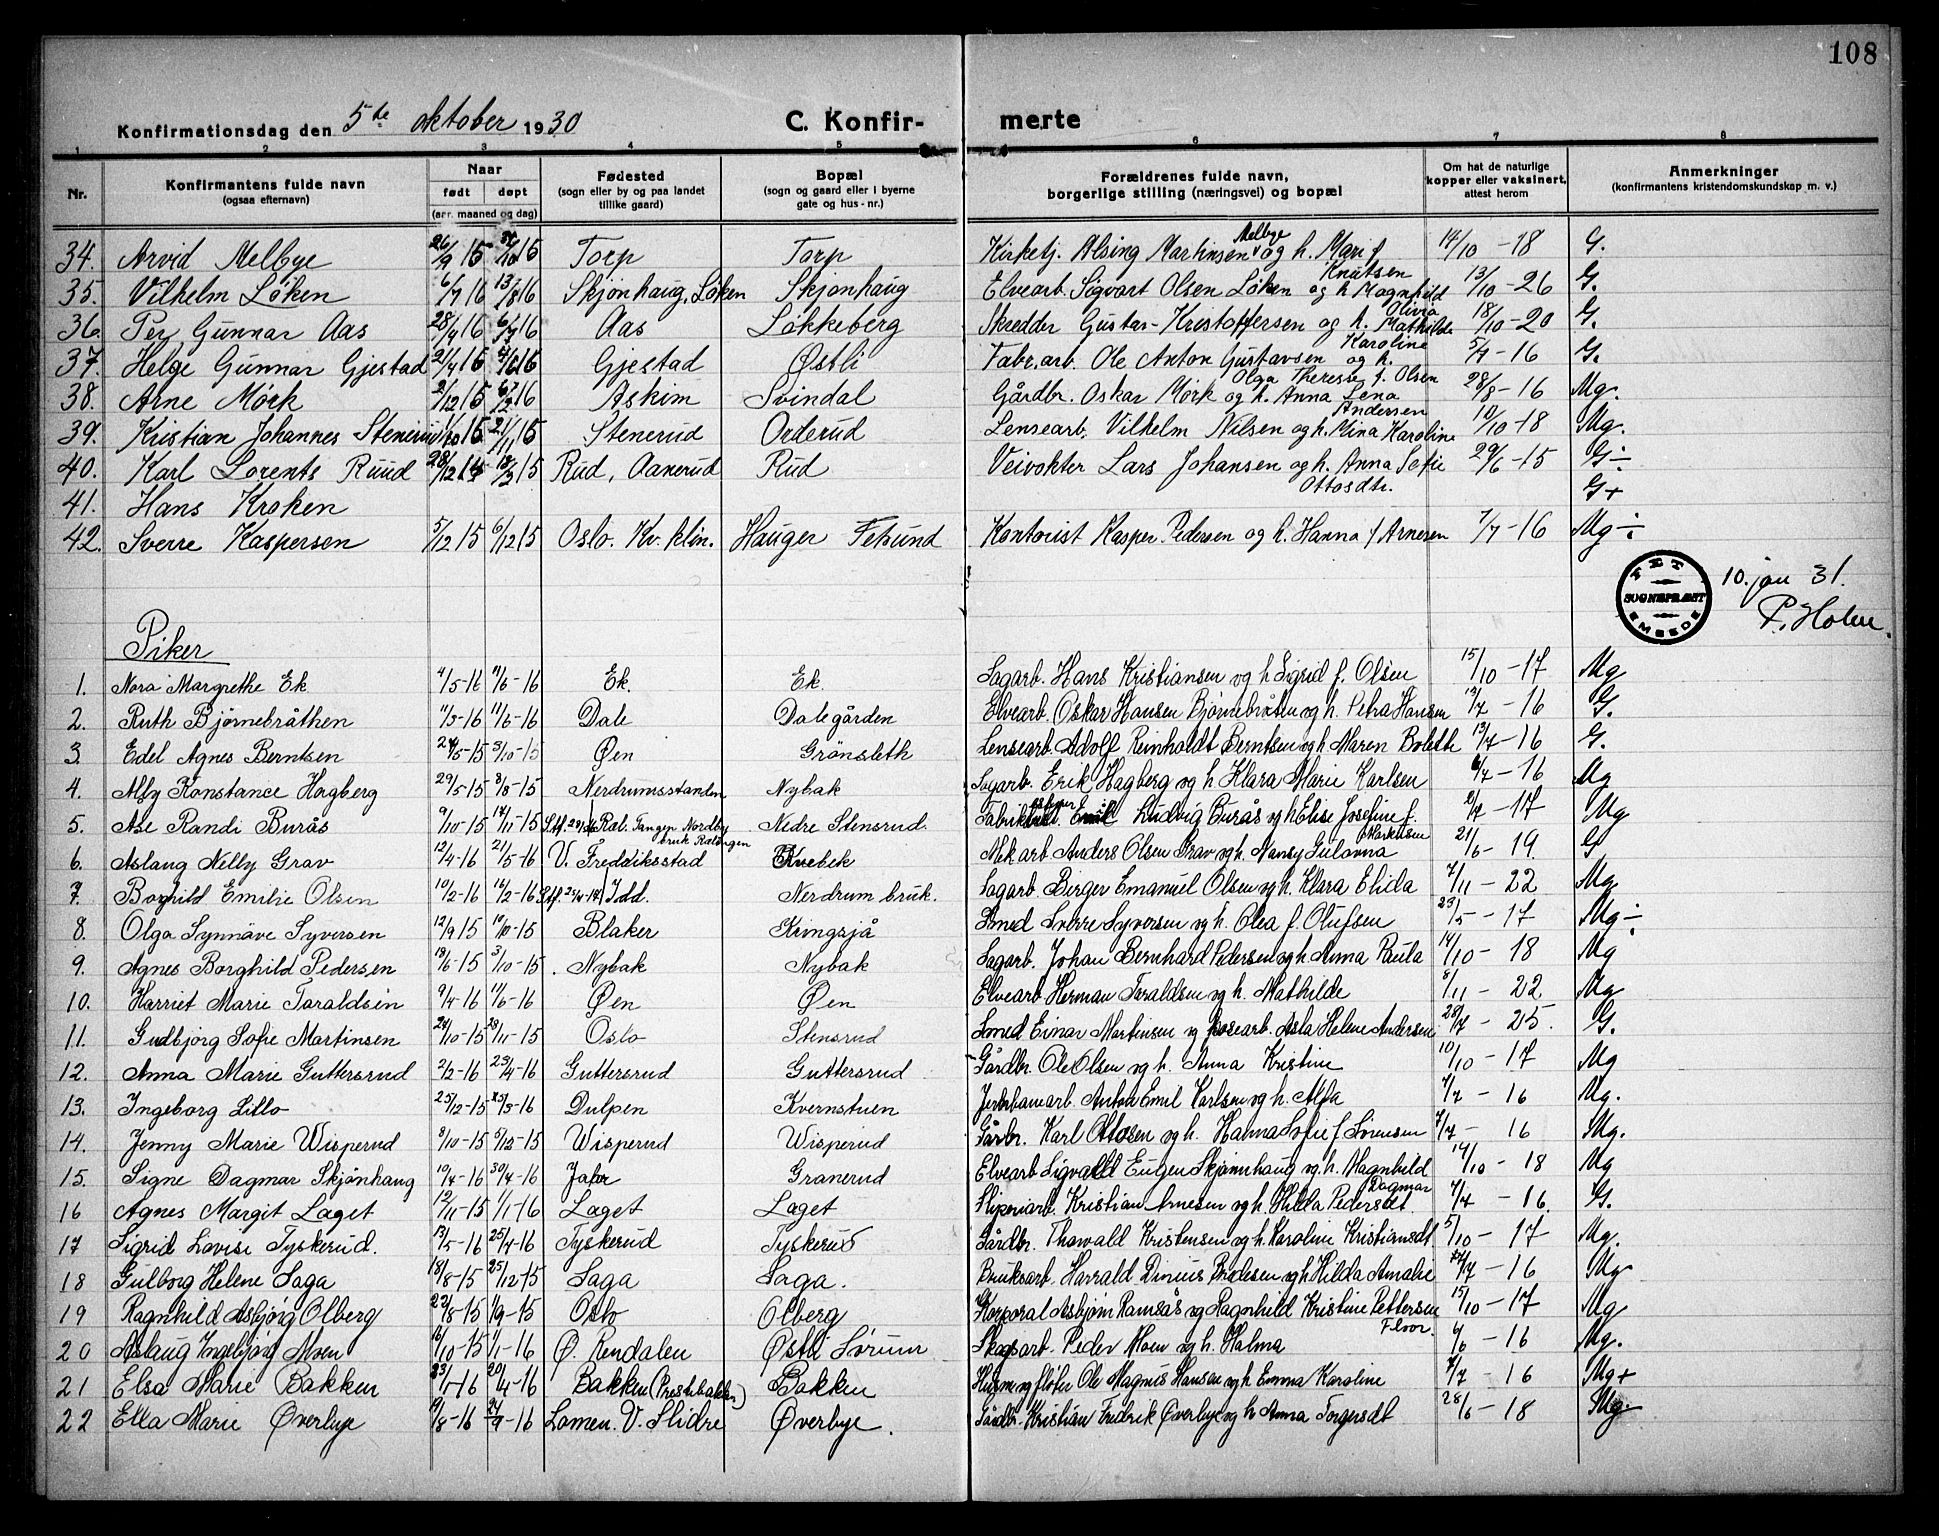 108
Konfirmationsdag den 5te oktober 1930 C. Konfir- merte
1 2 3 4 5 6 7 8
Nr. Konfirmantens fulde navn (ogsaa efternavn) Naar født døpt (arr. maaned og dag) Fødested (sogn eller by og paa landet tillike gaard) Bopæl (sogn og gaard eller i byerne gate og hus-nr.) Forældrenes fulde navn, borgerlige stilling (næringsvei) og bopæl Om hat de naturlige kopper eller vaksinert, attest herom Anmerkninger (konfirmantens kristendomskundskap m. v.)
34. Arvid Melbye 26/9 15 /10 15 Torp Torp Kirketj. Alsing Martinsen Melbye og h. Mari f 14/10 - 18 G.
35. Vilhelm Løken 6/7 16 13/8 16 Skjønhaug, Løken Skjønhaug Elvearb. Sigvart Olsen Løken og h Magnhild Knutsen 13/10 - 26 G.
36. Per Gunnar Aas 28/4 16 6/7 16 Aas Løkkeberg Skredder Gustav Krestoffersen og h. Olivia Mathilde 18/10 - 20 G.
37. Helge Gunnar Gjestad 21/4 16 4/6 16 Gjestad Østli Fabr.arb. Ole Anton Gustavsen og h. Karoline 5/7 - 16 G.
38. Arne Mørk 2/12 15 6/2 16 Askim Svindal Gårdbr. Oskar Mørk og h. Anna Lena Olga Therese f. Olsen 28/8 - 16 Mg.
39. Kristian Johannes Stenerud 1/10 15 21/11 15 Stenerud Orderud Lensearb. Vilhelm Nilsen og h. Mina Karoline Andersen 10/10 - 18 Mg.
40. Karl Lorents Ruud 28/12 14 18/3 15 Rud, Aanerud Rud Veivokter Lars Johansen og h. Anna Sofie Ottosdtr. 29/6 - 15 G÷
41. Hans Kroken G+
42. Sverre Kaspersen 5/12 15 6/12 15 Oslo. Kv. klin. Hauger Fetsund Kontorist Kasper Pedersen og h. Hanna f Arnesen 7/7 - 16 Mg÷
FET SOGNEPRÆST EMBEDE 10. jan 31.
P. Holm.
Piker
1. Nora Margrethe Ek 4/5-16 11/6-16 Ek. Ek. Sagarb. Hans Kristiansen og h Sigrid f. Olsen 15/10 - 17 Mg
2. Ruth Bjørnebråthen 11/3-16 11/6-16 Dale Dalegården Elvearb. Oskar Hansen Bjørnebråten og h. Petra Hansen 13/7 - 16 G.
3. Edel Agnes Berntsen 24/5-15 3/10-15 Øen Grønsleth Lensearb. Adolf Reinholdt Berntsen og h Maren Bolette 13/7 - 16 G.
4. Alfy Konstance Hagberg 29/5-15 8/8-15 Nerdrumsstanden Nybak Sagarb. Erik Hagberg og h Klara Marie Karlsen 6/7 - 16 Mg
5. Ase Randi Burås 9/10-15 14/11-15 Tangen Nordby bruk Rælingen Nedre Stensrud. Ludvig Burås og h Elise Josefine f. Markussen 2/7 - 17 Mg
6. Aslaug Nelly Grav 12/4-16 21/5-16 V. Fredriksstad Kvebek Mek arb Anders Olsen Grav og h. Nansy Gulovna 21/6 - 19. G
7. Borghild Emilie Olsen 10/2-16 16/2-16 Idd. Nerdrum bruk. Sagarb. Birger Emanuel Olsen og h. Klara Elida 7/11 - 22 Mg
8. Olga Synnøve Syversen 12/9 15 10/10-15 Blaker Kringsjå Smed Sverre Syversen og h. Olea f. Olufsen 23/5 - 17 Mg÷
9. Agnes Borghild Pedersen 18/6-15 3/10-15 Nybak Nybak Sagarb. Johan Bernhard Pedersen og h Anna Paula 14/10 - 18 Mg
10. Harriet Marie Taraldsen 9/4-16 11/6-16 Øen Øen Elvearb Herman Taraldsen og h. Mathilde 8/11 - 22 Mg
11. Gudbjørg Sofie Martinsen 24/10-15 28/11-15 Oslo Stensrud Smed Einar Martinsen og Asla Helene Andersen 28/7 - 25. G.
12. Anna Marie Guttersrud 2/2-16 23/4-16 Guttersrud Guttersrud Gårdbr. Ole Olsen og h. Anna Kristine 10/10 - 17 Mg
13. Ingeborg Lillo 25/12-15 25/3-16 Dulpen Kvernstuen Jernbanearb. Anton Emil Karlsen og h. Alfa 4/7 - 16 Mg.
14. Jenny Marie Wisperud 8/10-15 5/12-15 Wisperud Wisperud Gårbr. Karl Ottosen og h. Halma Sofie f Sørensen 7/7 - 16 Mg.
15. Signe Dagmar Skjønhaug 10/4-16 30/4-16 Jahr Granerud Elvearb Sigvald Eugen Skjønnhaug og h. Magnhild Dagmar 14/10 - 18 Mg
16 Agnes Margit Laget 12/11-15 1/1-16 Laget Laget Sliperiarb. Kristian Arnesen og h Hilda Pedersdt. 7/7 - 16. G.
17 Sigrid Lovise Tyskerud. 13/5-16 25/4-16 Tyskerud Tyskerud Gårdbr. Thorvald Kristensen og h. Karoline Kristiansdt. 5/10 - 17 Mg.
18 Gulborg Helene Saga 18/8-15 25/12-15 Saga Saga. Bruksarb. Harald Dinius Bredesen og h Hilda Amalie /7 - 16 Mg
19 Ragnhild Asbjørg Olberg 22/8-15 1/9-15 Oslo Olberg Korporal Asbjørn Ramsås og Ragnhild Kristine Pettersen 15/10 - 17 Mg
20 Aslaug Ingebjørg Moen 16/10-15 1/1-16 Ø. Rendalen Østli Sørum Skogsarb. Peder Moen og h. Halma Floor. 6/6 - 16 Mg.
21 Elsa Marie Bakken 23/1-16 20/4-16 Bakken (Prestbakken) Bakken Husm. og fløter Ole Magnus Hansen og h Emma Karoline 7/7 - 16 Mg+
22 Ella Marie Øverbye 9/8-16 24/9-16 Lomen. V. Slidre Øverbye. Gårdbr. Kristian Fredrik Øverbye og h Anna Torgersdt 28/6 - 18 Mg.